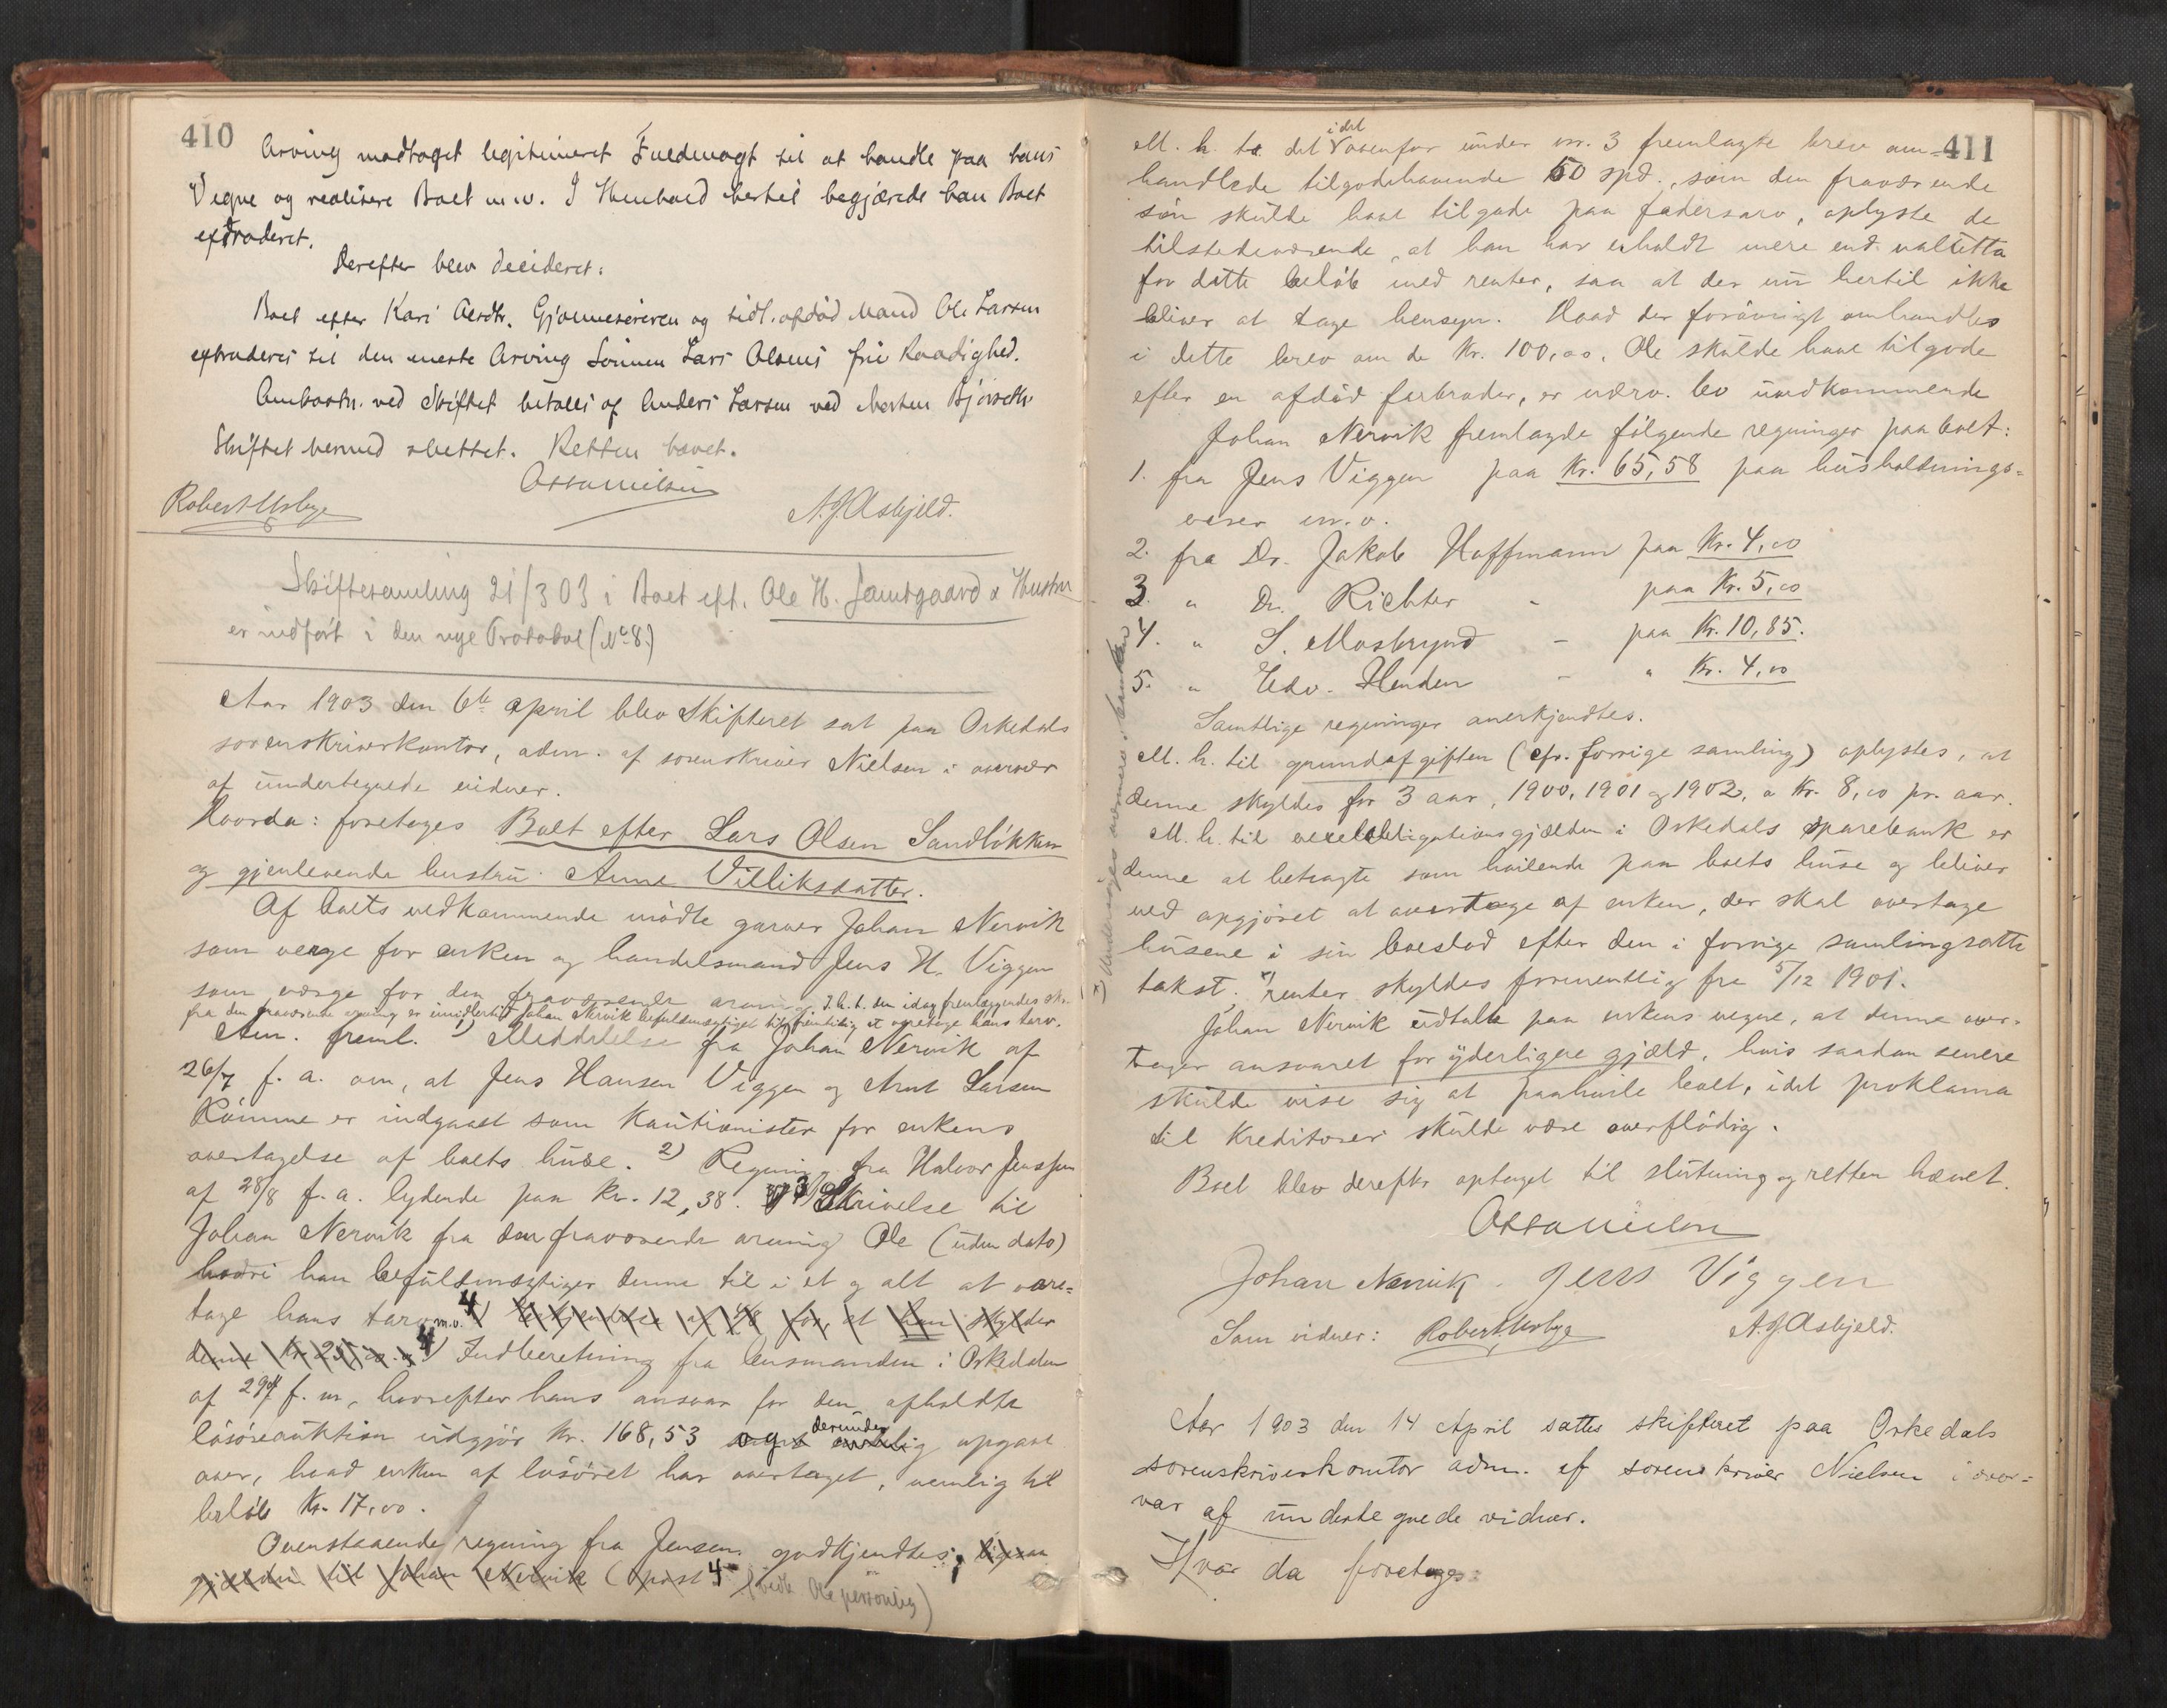 410
Arving modtaget legitimeret Fuldmagt til at handle paa hans
Vegne og realisere Boet m.v. I Henhold hertil begjærede han Boet
extraderet.
Derefter blev decideret:
Boet efter Kari Olsdtr. Gjønnesøieren og tidl. afdød Mand Ole Larsen
extraderes til den eneste Arving Sønnen Lars Olsens frie Raadighed.
Omkostn. ved Skiftet betales af Anders Larsen ved Morten Bjørseth
Skiftet hermed sluttet. Retten hævet.
Robert Usbye
A.J. Asbjeld.
Skiftesamling 21/3 03 i Boet eft. Ole H. Jamtgaard & Hustru
er indført i den nye Protokol (No 8)
Aar 1903 den 6te april blev Skifteret sat paa Orkedals
sorenskriverkontor, adm. af sorenskriver Nielsen i overvær
af undertegnede vidner.
Hvorda: foretoges Boet efter Lars Olsen Sandløkken
og gjenlevende hustru Anne Villiksdatter.
Af boets vedkommende mødte garver Johan Nervik
som verge for enken og handelsmand Jens H. Viggen
som værge for den fraværende arving. I.h.t. den idag fremlæggendes skr.
fra den fraværende arving er imidlertid Johan Nervik befuldmægtiget til fremtidig at varetage hans tarv.
Adm. freml. 1) Meddelelse fra Johan Nervik af
26/7 f. a. om, at Jens Hansen Viggen og Arnt Larsen
Rømme er indgaaet som Kautionister for enkens
overtagelse af boets huse. 2) Regning fra Halvor Jenssen
af 28/8 f. a. lydende paa Kr. 12,38. 3) Skrivelse til
Johan Nervik fra den fraværende arving Ole (uden dato)
hvori han befuldmægtiger denne til i et og alt at vare-
tage hans tarv m.v. 4) at han skylder
denne Kr. 25,00 4) Indberetning fra lensmanden i Orkedalen
af 29/4 f. m., hvorefter hans ansvar for den afholdte
løsøreauktion udgjør Kr. 168,53 derunder opgave
over, hvad enken af løsøret har overtaget, nemlig til
beløb Kr. 17,00.
Ovenstaaende regning fra Jensen godkjendtes, ligesaa
gjælden til Johan Nervik (post 4 (vedk. Ole personlig)
411
M. h. t. det idet ovenfor under nr. 3 fremlagte brev om-
handlede tilgodehavende 50 spd., som den fraværende
søn skulde have tilgode paa fædrearv, oplyste de
tilstedeværende, at han har erholdt mere end valutta
for dette beløb med renter, saa at der nu hertil ikke
bliver at tage hensyn. Hvad der forøvrigt omhandles
i dette brev om de Kr. 100,00, Ole skulde have tilgode
efter en afdød farbroder, er nærv. bo uvedkommende
Johan Nervik fremlagde følgende regninger paa boet:
1. fra Jens Viggen paa Kr. 65,58 paa husholdnings-
varer m.v.
2. fra Dr. Jakob Hoffmann paa Kr. 4,00
3. " Dr. Richter - paa Kr. 5,00
4. " S. Mosbrynd - paa Kr. 10,85.
5. " Edv. Henden - " Kr. 4,00
Samtlige regninger anerkjendtes.
M. h. til grundafgiften (cfr. forrige samling) oplystes, at
denne skyldes for 3 aar, 1900, 1901 og 1902, a Kr. 8,00 pr. aar.
M. h. til vexelobligationsgjælden i Orkedals Sparebank er
denne at betragte som hvilende paa boets huse og bliver
ved opgjøret at overtage af enken, der skal overtage
husene i sin boeslod efter den i forrige samling satte
takst. x) renter skyldes formentlig fra 5/12 1901.
x) Undersøges nærmere i banken
Johan Nervik udtalte paa enkens vegne, at denne over-
tager ansvaret for yderligere gjæld, hvis saadan senere
skulde vise sig at paahvile boet, idet proklama
til Kreditorer skulde være overflødig.
Boet blev derefter optaget til slutning og retten hævet.
Johan Nervik. Jens Viggen
Som vidner: Robert Usbye A.J. Asbjeld.
Aar 1903 den 14 April sattes skifteret paa Orkedals
sorenskriverkontor adm. af sorenskriver Nielsen i over-
vær af undertegnede vidner.
Hvor da foretoges: